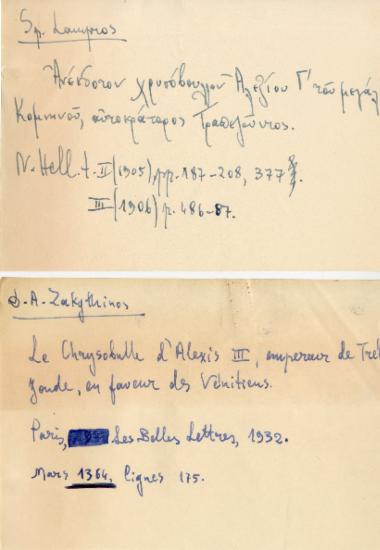 Sp. Lampros
Ἀνέκδοτον χρυσόβουλλον Ἀλεξίου Γ' τοῦ μεγάλ
Κομνηνοῦ, αὐτοκράτορος Τραπεζοῦντος.
N. Hell. t. II (1905), pp. 187-208, 377
III (1906) p. 486-87.
D. A. Zakythinos
Le Chrysobulle d'Alexis III, empereur de Treb
zonde, en faveur des Vénitiens.
Paris, Les Belles Lettres, 1932.
Mars 1364, lignes 175.